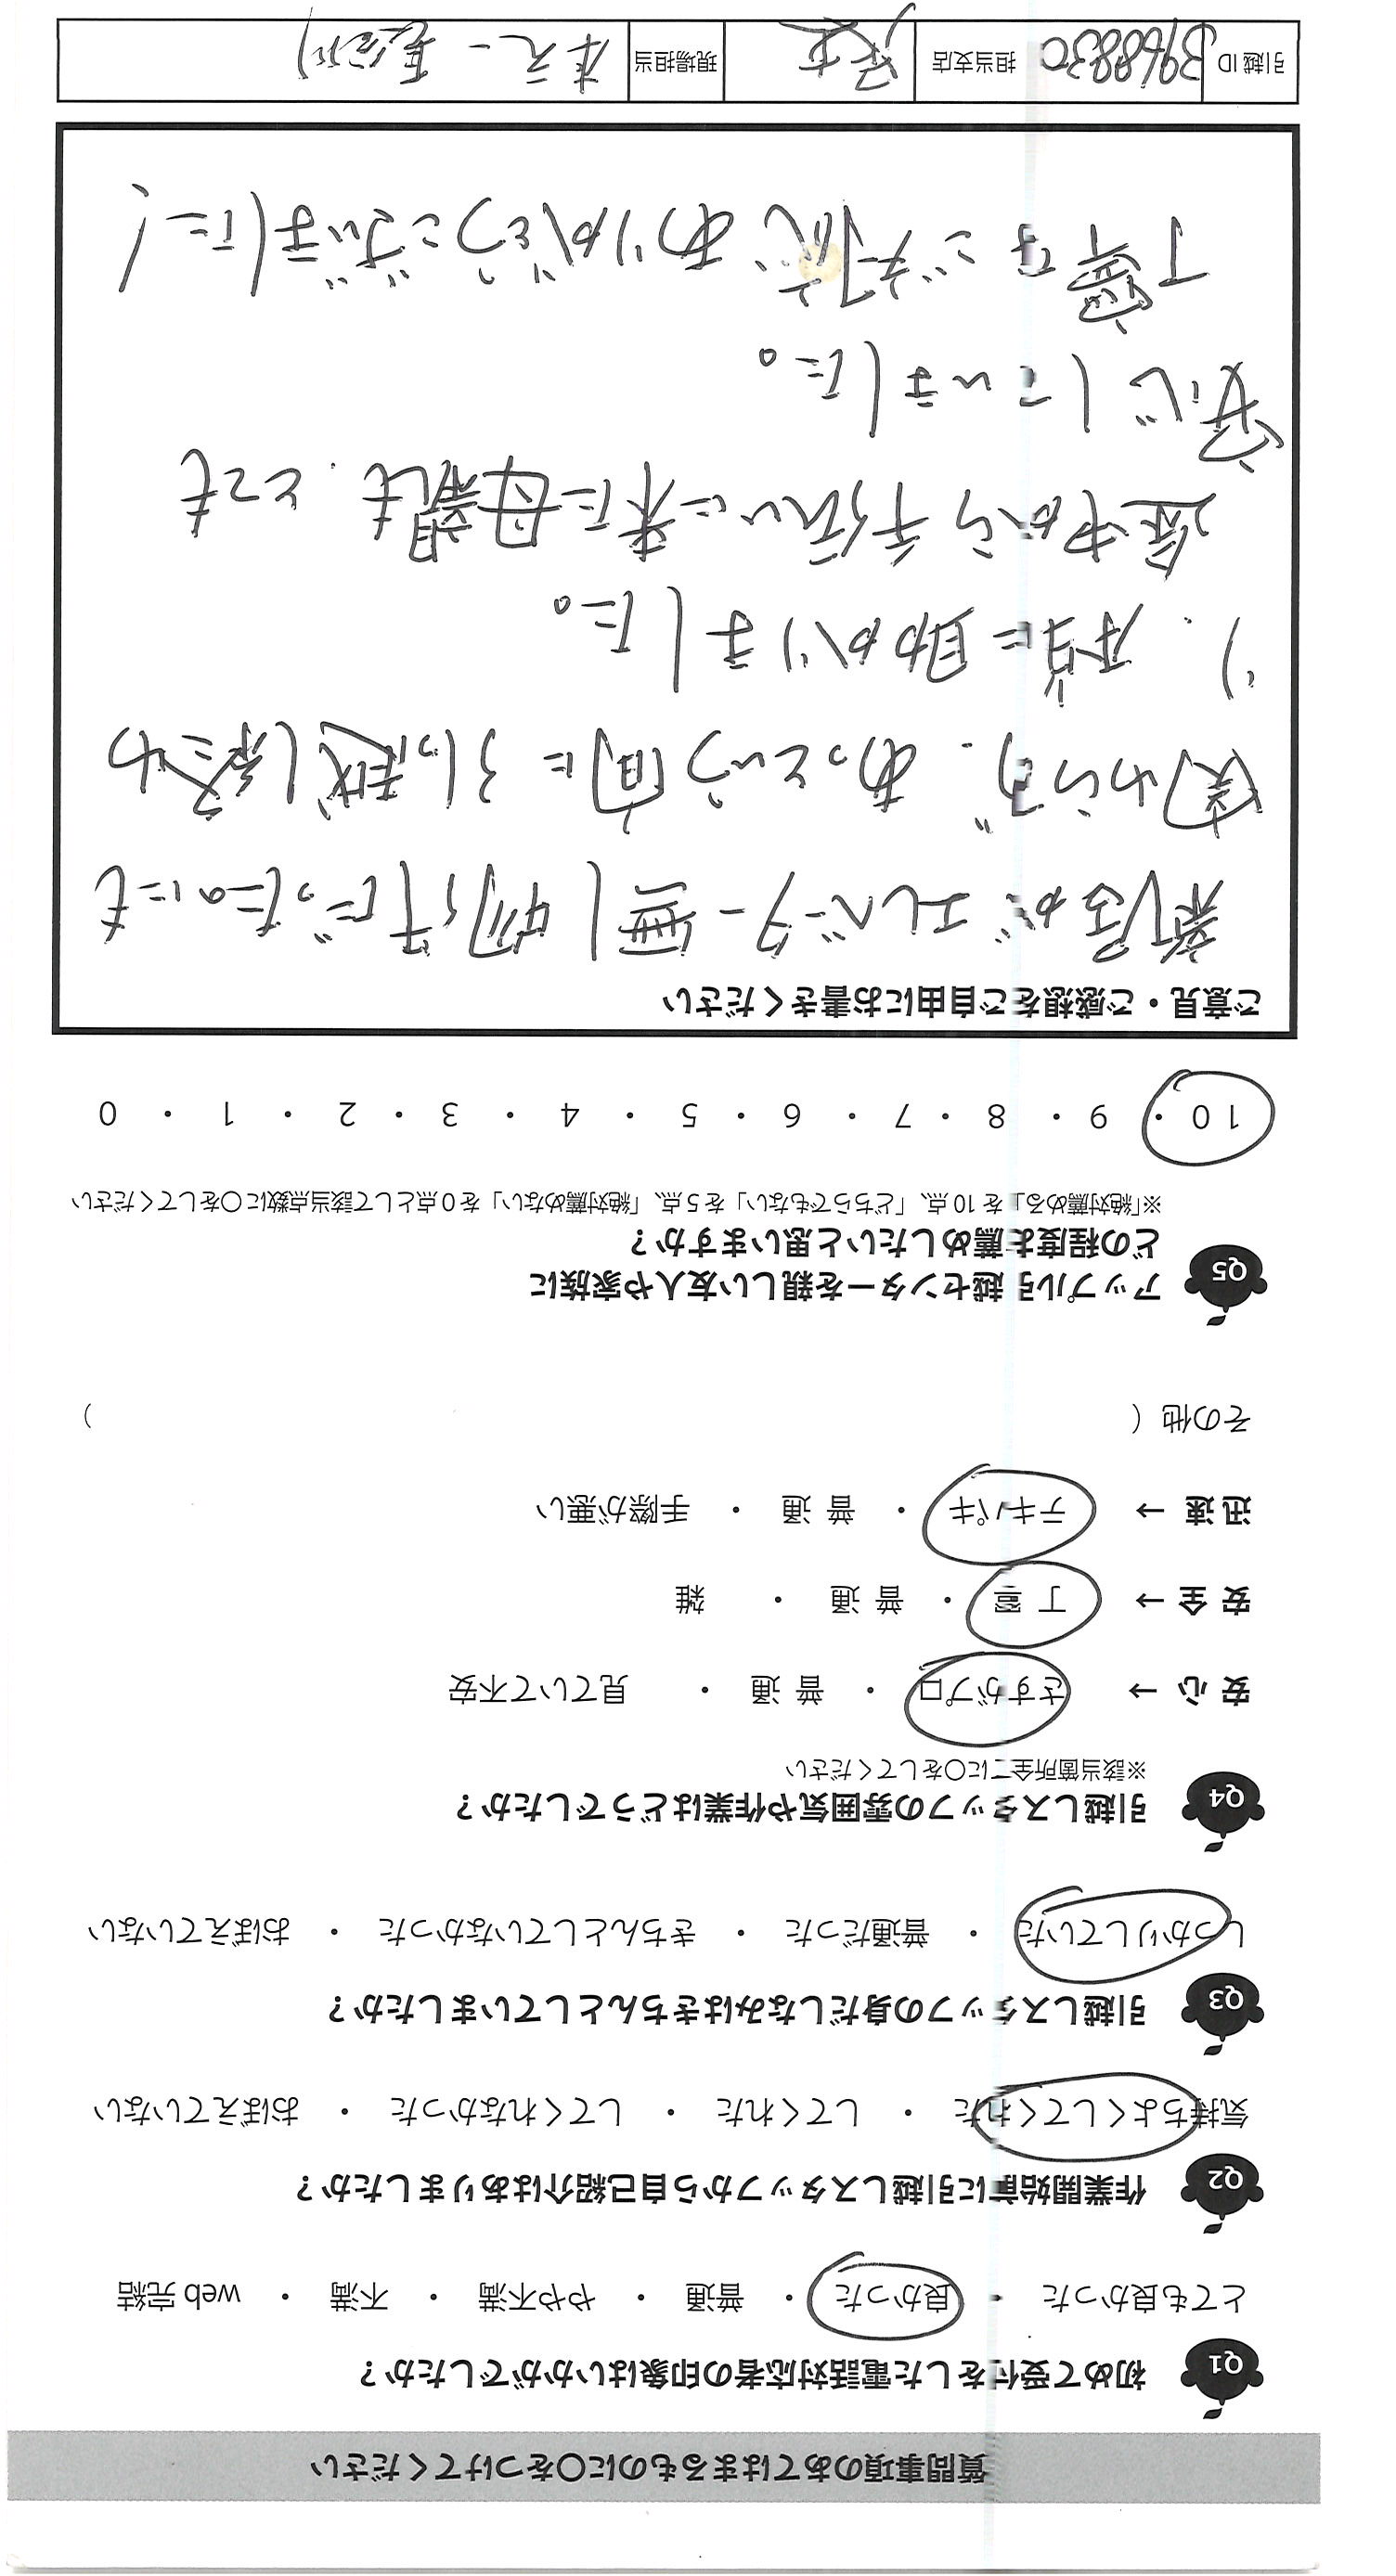 質問事項のあてはまるものに〇をつけてください
Q1 初めて受付をした電話対応者の印象はいかがでしたか？
とても良かった ・ 良かった ・ 普通 ・ やや不満 ・ 不満 ・ web 完結
Q2 作業開始前に引越しスタッフから自己紹介はありましたか？
気持ちよくしてくれた ・ してくれた ・ してくれなかった ・ おぼえていない
Q3 引越しスタッフの身だしなみはきちんとしていましたか？
しっかりしていた ・ 普通だった ・ きちんとしていなかった ・ おぼえていない
Q4 引越しスタッフの雰囲気や作業はどうでしたか？
※該当箇所全てに〇をしてください
安 心 → さすがプロ ・ 普 通 ・ 見ていて不安
安 全 → 丁 寧 ・ 普 通 ・ 雑
迅 速 → テキパキ ・ 普 通 ・ 手際が悪い
その他 （ ）
Q5 アップル引越センターを親しい友人や家族に
どの程度お薦めしたいと思いますか？
※「絶対薦める」を 10 点、「どちらでもない」を 5 点、「絶対薦めない」を 0 点として該当点数に〇をしてください
10 ・ 9 ・ 8 ・ 7 ・ 6 ・ 5 ・ 4 ・ 3 ・ 2 ・ 1 ・ 0
ご意見・ご感想をご自由にお書きください
新居がエレベーター無し物件だったのにも
関わらず、あっという間に引っ越し終わ
り、本当に助かりました。
途中から手伝いに来た母親も、とても
安心していました。
丁寧なご対応、ありがとうございました！
引越 ID 3968830 担当支店 現場担当